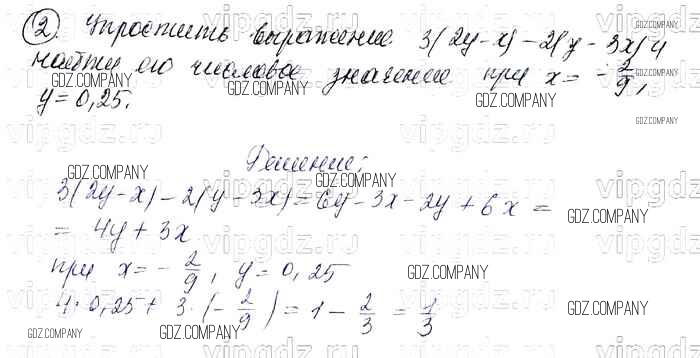 2. Упростить выражение 3(2y-x)-2(y-3x) и
найти его числовое значение при x = -2/9,
y = 0,25.
Решение:
3(2y-x)-2(y-3x) = 6y-3x-2y+6x =
= 4y+3x
при x = -2/9, y = 0,25
4·0,25+3·(-2/9) = 1 - 2/3 = 1/3
GDZ.COMPANY
vipgdz.ru